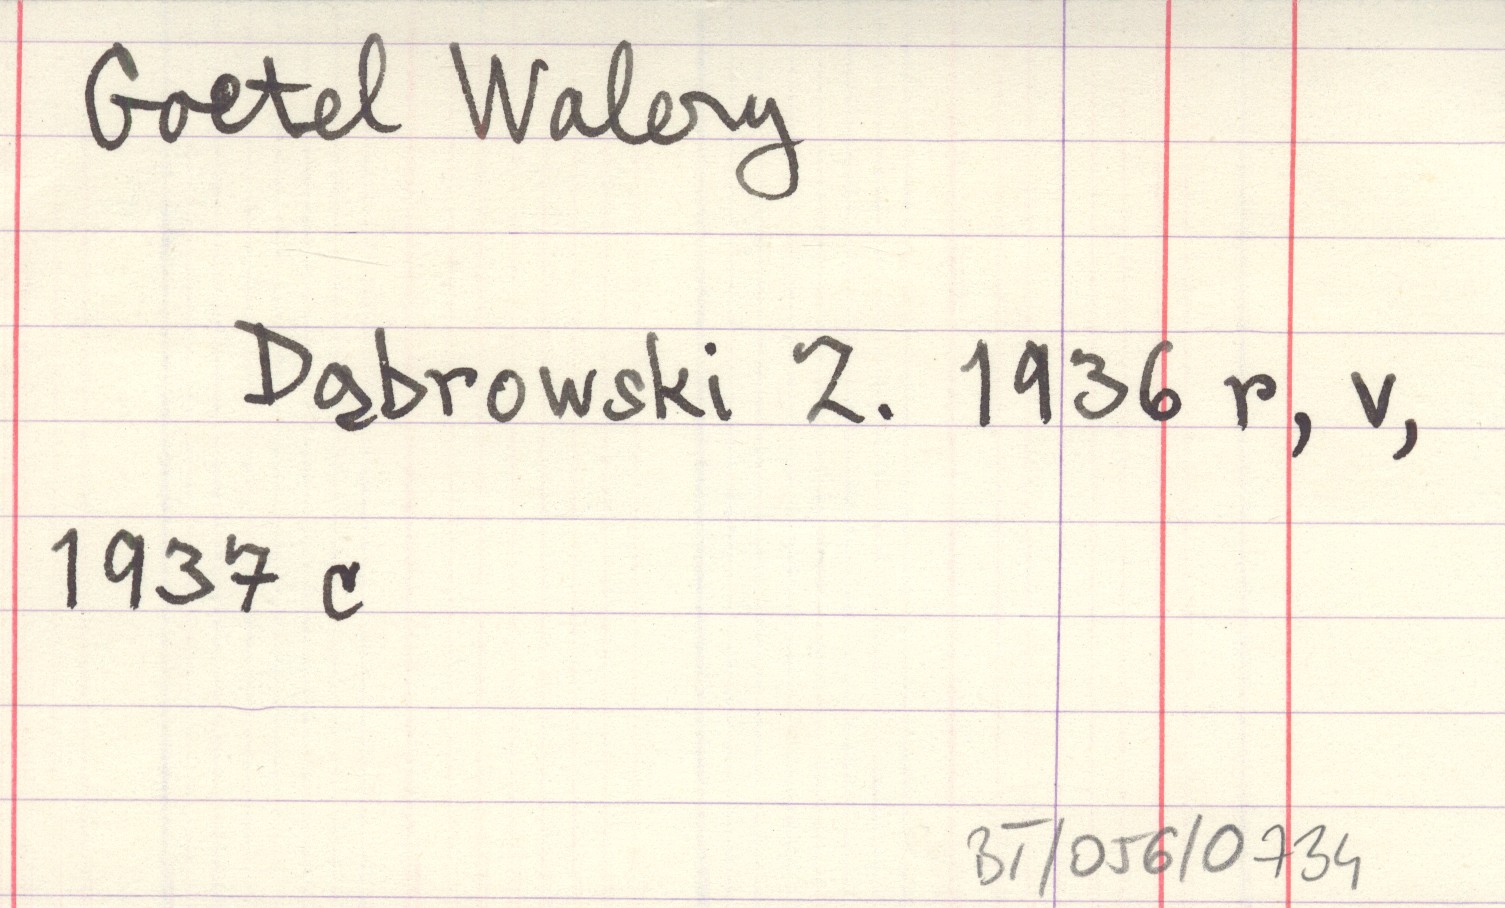 Goetel Walery
Dąbrowski Z. 1936 r, v,
1937 c
BT/056/0734